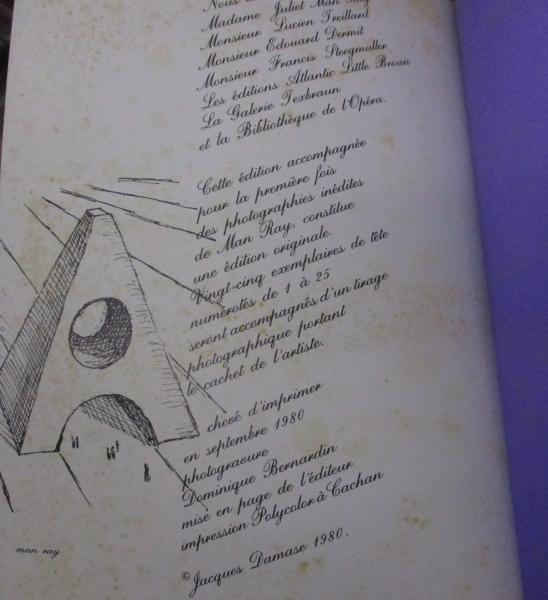 Nous
Madame Juliet Man Ray
Monsieur Lucien Treillard
Monsieur Edouard Dermit
Monsieur Francis Steegmuller
Les éditions Atlantic Little Brown
La Galerie Texbraun
et la Bibliothèque de l'Opéra.
Cette édition accompagnée
pour la première fois
des photographies inédites
de Man Ray, constitue
une édition originale.
Vingt-cinq exemplaires de tête
numérotés de 1 à 25
seront accompagnés d'un tirage
photographique portant
le cachet de l'artiste.
chevé d'imprimer
en septembre 1980
photogravure
Dominique Bernardin
mise en page de l'éditeur
impression Polycolor à Cachan
© Jacques Damase 1980.
man ray